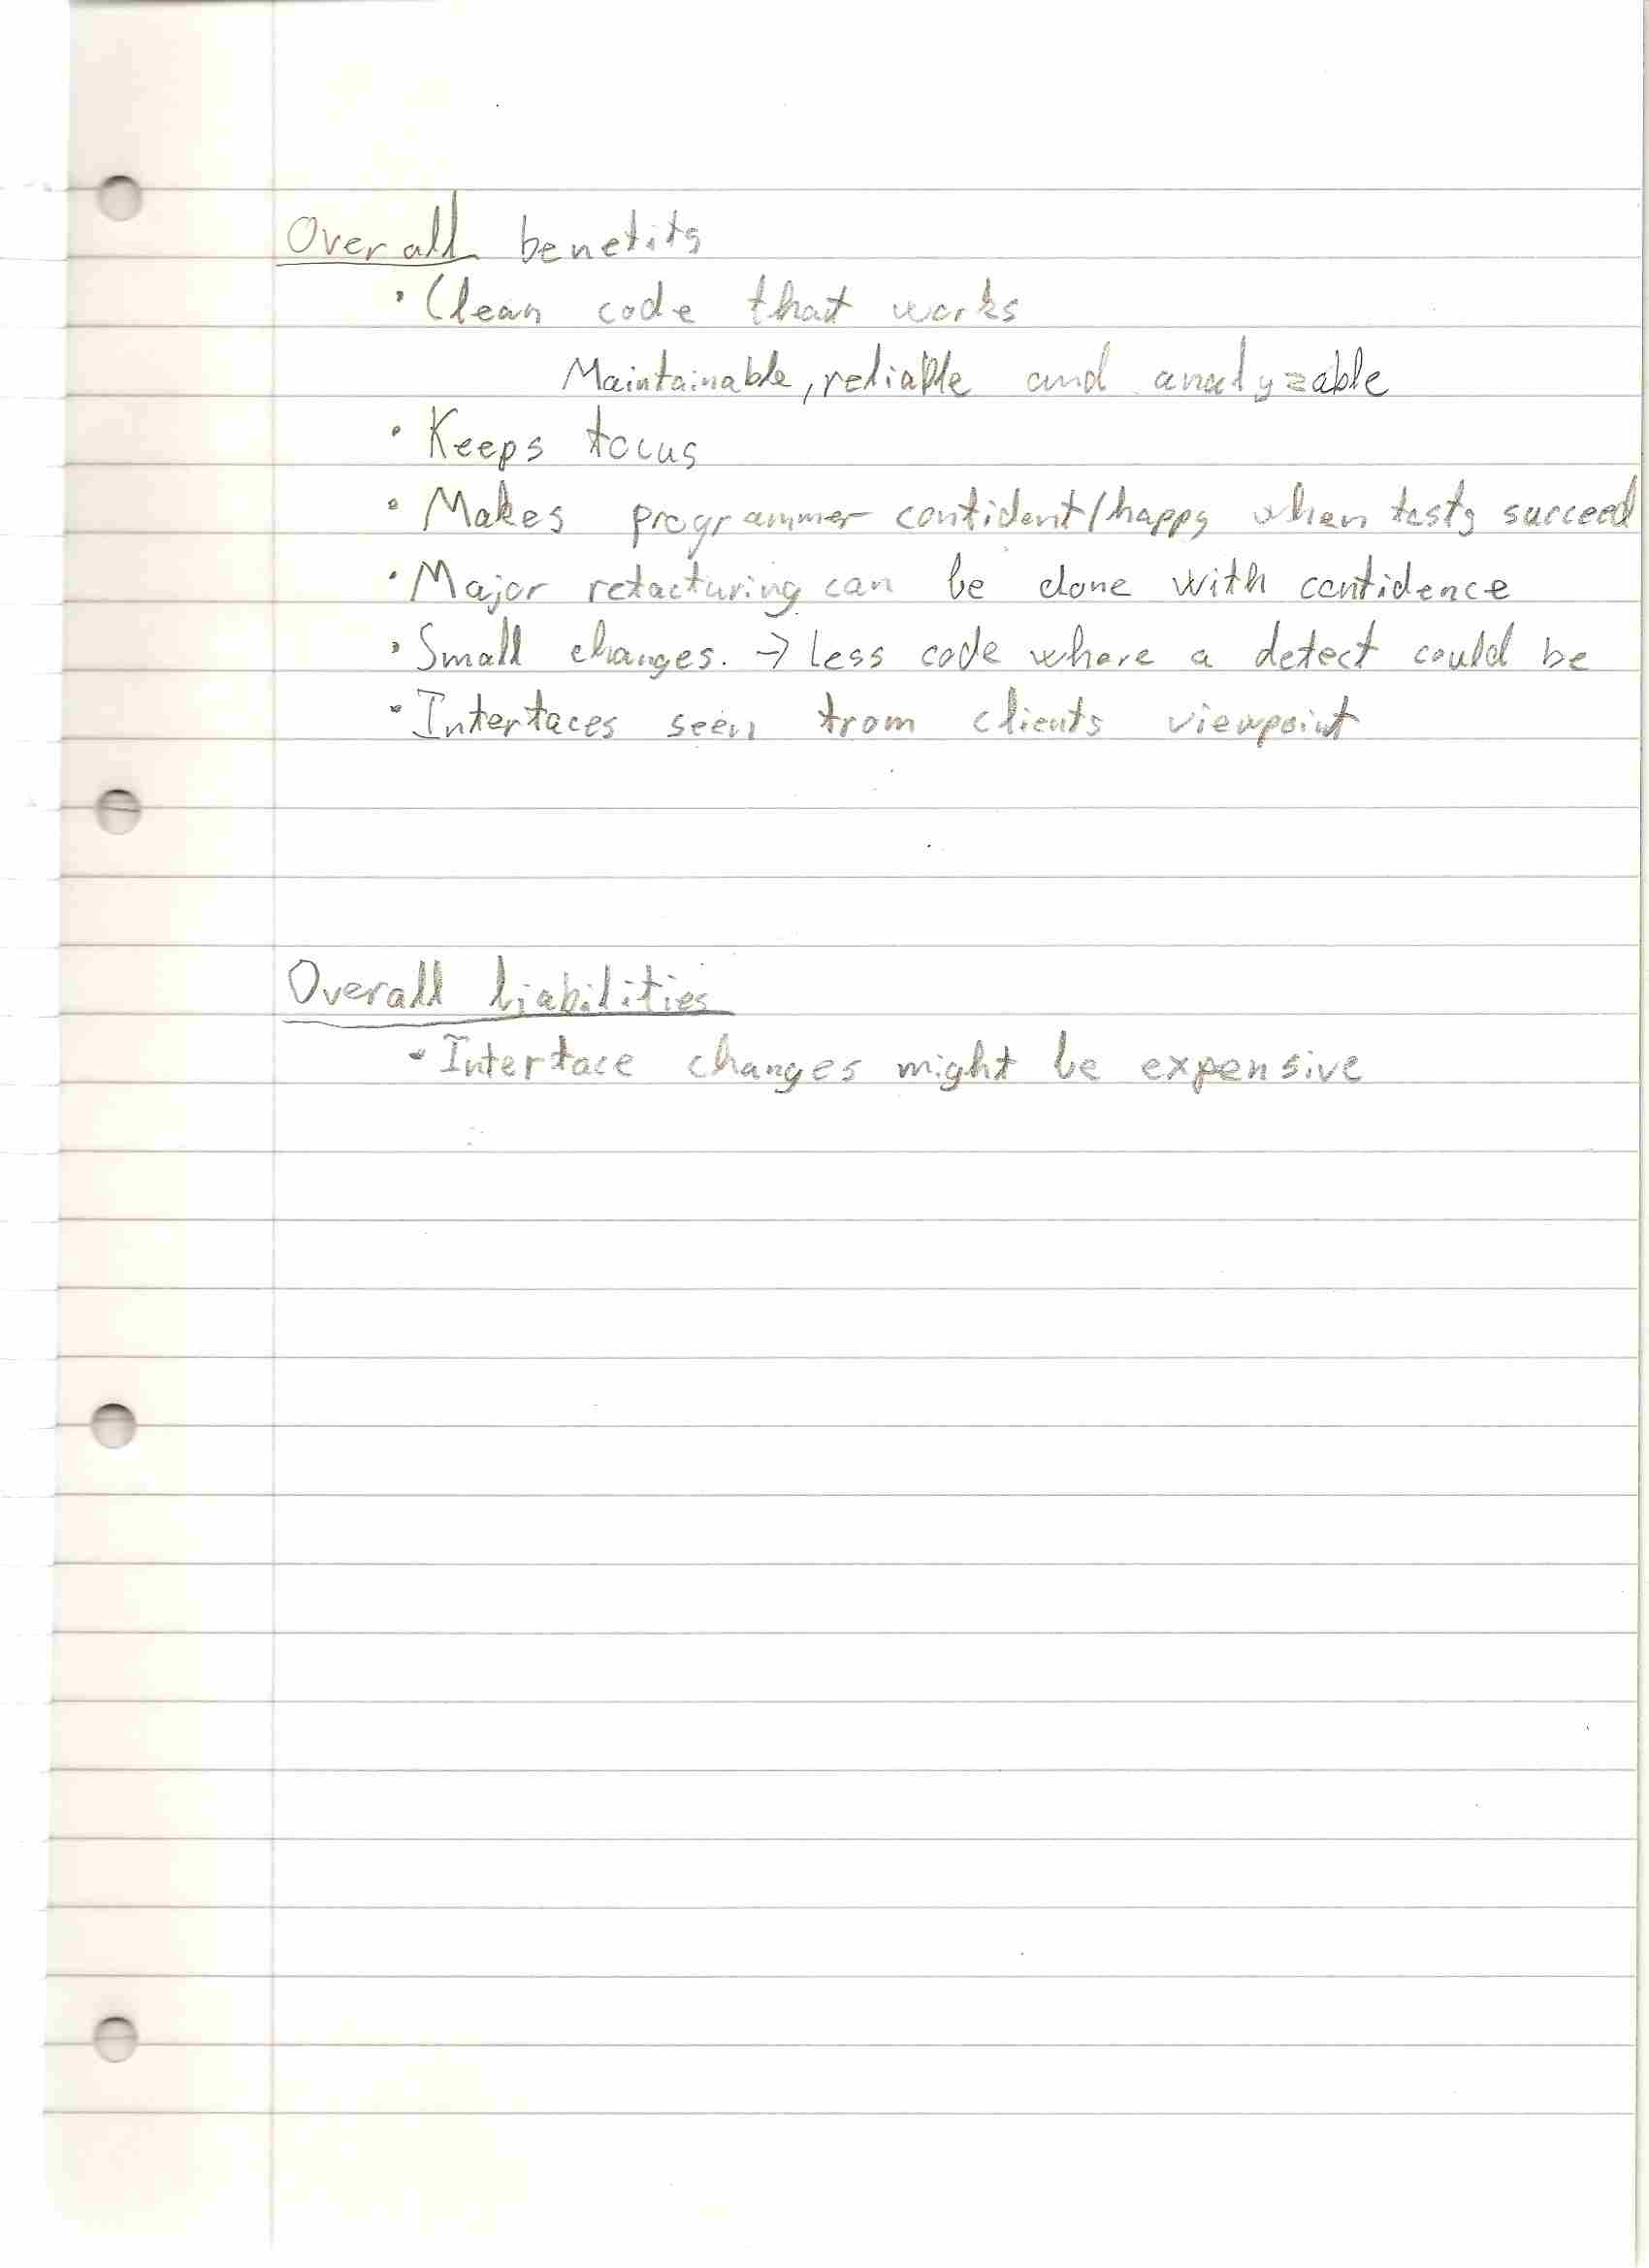 Overall benefits
• Clean code that works
Maintainable, reliable and analyzable
• Keeps focus
• Makes programmer confident/happy when tests succeed
• Major refacturing can be done with confidence
• Small changes. → Less code where a defect could be
• Interfaces seen from clients viewpoint
Overall liabilities
• Interface changes might be expensive